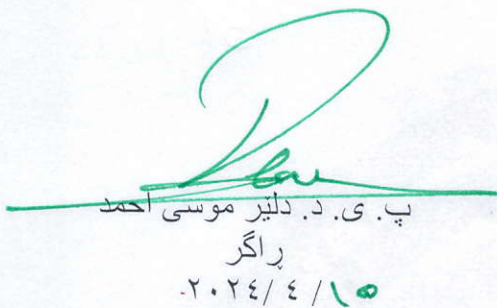 پ. ی. د. دلێر موسی احمد
ڕاگر
٢٠٢٤/ ٤ /١٥